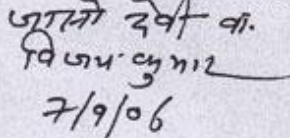 जासो देवी वा.
विजय कुमार
7/9/06